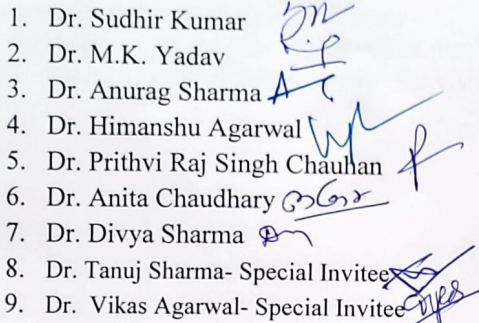 1. Dr. Sudhir Kumar
2. Dr. M.K. Yadav
3. Dr. Anurag Sharma
4. Dr. Himanshu Agarwal
5. Dr. Prithvi Raj Singh Chauhan
6. Dr. Anita Chaudhary
7. Dr. Divya Sharma
8. Dr. Tanuj Sharma- Special Invitee
9. Dr. Vikas Agarwal- Special Invitee